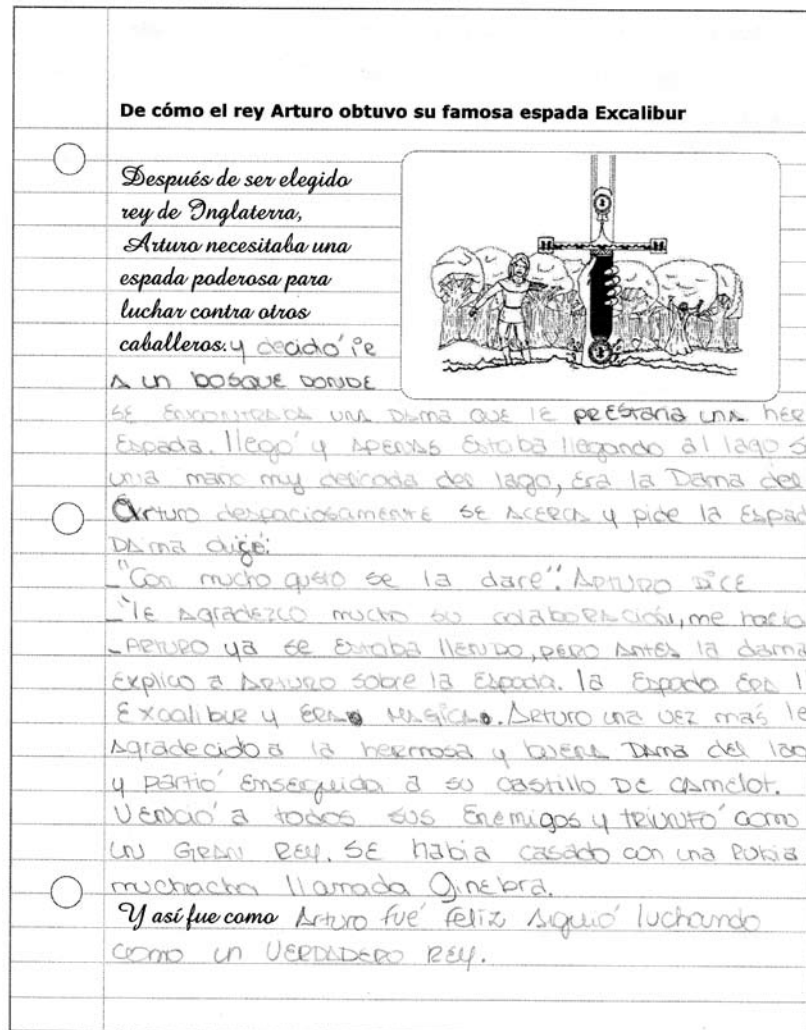 De cómo el rey Arturo obtuvo su famosa espada Excalibur
Después de ser elegido
rey de Inglaterra,
Arturo necesitaba una
espada poderosa para
luchar contra otros
caballeros. y decidó ir
A un bosque donde
se encontraba una dama que le prestaria una her
Espada. llegó y apenas estaba llegando al lago s
una mano muy delicada del lago, era la Dama del
Arturo despaciosamente se acerca y pide la Espad
Dama dige:
_"Con mucho gusto se la dare". Arturo dice
_"le agradezco mucho su colaboración, me hacia
_Arturo ya se estaba llendo, pero antes la dama
explico a Arturo sobre la Espada. la Espada era l
Excalibur y era magica. Arturo una vez más le
agradecido a la hermosa y buena Dama del lag
y partió enserguida a su castillo De camelot.
Venció a todos sus Enemigos y triunfó como
un Gran Rey. se habia casado con una Rubia
muchacha llamada Ginebra.
Y así fue como Arturo fué feliz siguió luchando
como un verdadero Rey.